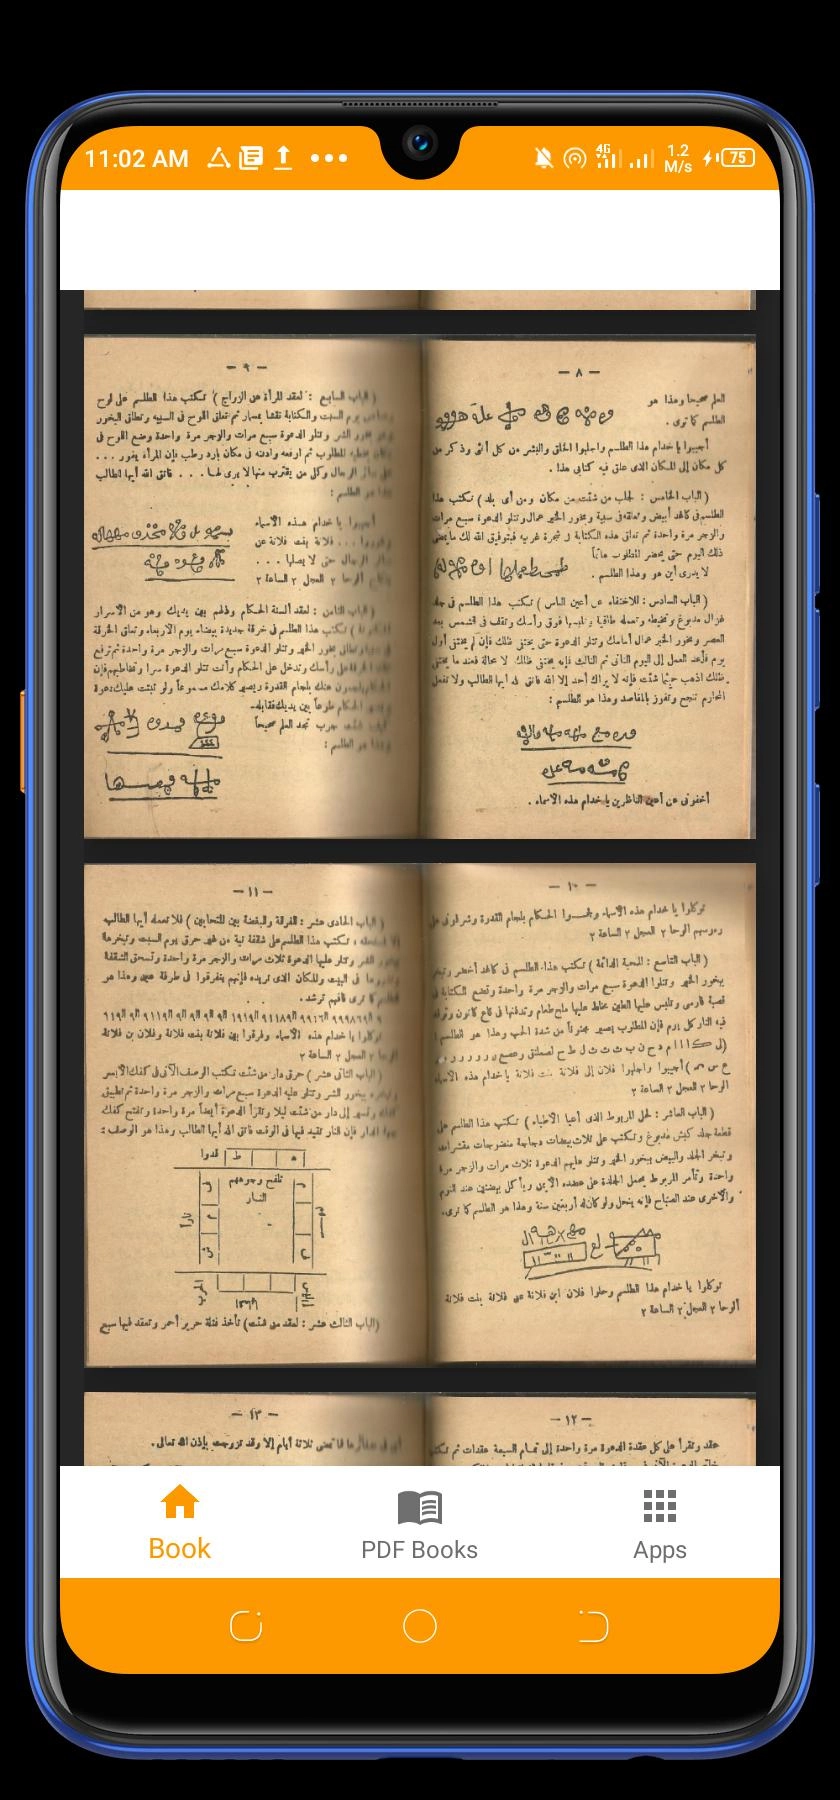 11:02 AM
4G
1.2
M/s
75
— ٨ —
العلم صحيحا وهذا هو
الطلسم كما ترى .
أجيبوا يا خدام هذا الطلسم واجلبوا الخلق والبشر من كل أنثى وذكر من
كل مكان إلى المكان الذى علق فيه كتابى هذا .
( الباب الخامس : لجلب من شئت من مكان ومن أى بلد ) تكتب هذا
الطلسم فى كاغد أبيض وتعلقه فى سيبة وبخور الخير عمال وتتلو الدعوة سبع مرات
والزجر مرة واحدة ثم تعلق هذه الكتابة فى شجرة غربيه فبتوفيق الله لك ما يمضى
ذلك اليوم حتى يحضر المطلوب هائماً
لا يدرى أين هو وهذا الطلسم .
( الباب السادس : للاختفاء عن أعين الناس ) تكتب هذا الطلسم فى جلد
غزال مدبوغ وتخيطه وتعمله طاقية وتلبسها فوق رأسك وتقف فى الشمس بعد
العصر وبخور الخير عمال أمامك وتتلو الدعوة حتى يختفى ظلك فإن لم يختفى أول
يوم فأعد العمل إلى اليوم الثانى ثم الثالث فإنه يختفى ظلك لا محالة فعند ما يختفى
ظلك اذهب حيثما شئت فإنه لا يراك أحد إلا الله فاتق الله ايها الطالب ولا تفعل
المحارم تنجح وتفوز بالمقاصد وهذا هو الطلسم :
أخفونى عن أعين الناظرين يا خدام هذه الاسماء .
— ٩ —
( الباب السابع : لعقد المرأة عن الزواج ) تكتب هذا الطلسم على لوح
يوم السبت والكتابة نقشا بمسمار ثم تعلق اللوح فى السيبه وتطلق البخور
وهو بخور الشر وتتلو الدعوة سبع مرات والزجر مرة واحدة وضع اللوح فى
للمطلوب ثم ارفعه وادفنه فى مكان بارد رطب فإن المرأة يغور ...
الرجال وكل من يقترب منها لا يرى لهـا ... فاتق الله أيها الطالب
هو الطلسم :
أجيبوا يا خدام هـذه الأسماء
... فلانة بنت فلانة عن
الرجال حتى لا يصلها ...
ألوحا ٢ العجل ٢ الساعة ٢
( الباب الثامن : لعقد ألسنة الحكام وذلهم بين يديك وهو من الأسرار
) تكتب هذا الطلسم فى خرقة جديدة بيضاء يوم الأربعاء وتعلق الخرقة
بخور الخير وتتلو الدعوة سبع مرات والزجر مرة واحدة ثم ترفع
رأسك وتدخل على الحكام وأنت تتلو الدعوة سرا وتخاطبهم فإن
عنك بلجام القدرة ويصير كلامك مسموعاً ولو تثبت عليك دعوة
الحكام طوعاً بين يديك فقابله
شئت جرب تجد العلم صحيحاً
وهذا هو الطلسم :
— ١٠ —
توكلوا يا خدام هذه الأسماء وألجمـوا الحكام بلجام القدرة وشرفونى على
رءوسهم الوحا ٢ العجل ٢ الساعة ٢
( الباب التاسع : المحبة الدائمة ) تكتب هذا الطلسم فى كاغد أخضر وتبخر
ببخور الخير وتتلوا الدعوة سبع مرات والزجر مرة واحدة وتضع الكتابة فى
قصبة فارسى وتلبس عليها الطين مخلط عليها ملح طعام وتدفنها فى قاع كانون وتوقد
فيه النار كل يوم فإن المطلوب يصير مجنوناً من شدة الحب وهذا هو الطلسم
أجيبوا واجلبوا فلان إلى فلانة بنت فلانة يا خدام هذه الأسماء
الوحا ٢ العجل ٢ الساعة ٢
( الباب العاشر : لحل المربوط الذى أعيا الأطباء ) تكتب هذا الطلسم على
قطعة جلد كبش مدبوغ وتكتب على ثلاث بيضات دجاجة منضوجات مقشرات
وتبخر الجلد والبيض ببخور الخير وتتلو عليهم الدعوة ثلاث مرات والزجر مرة
واحدة وتأمر المربوط بحمل الجلدة على عضده الأيمن ويأكل بيضتين عند النوم
والأخرى عند الصباح فإنه ينحل ولو كان له أربعين سنة وهذا هو الطلسم كما ترى.
توكلوا يا خدام هذا الطلسم وحلوا فلان ابن فلانة على فلانة بنت فلانة
ألوحا ٢ العجل ٢ الساعة ٢
— ١١ —
( الباب الحادى عشر : الفرقة والبغضة بين المتحابين ) فلا تعمله أيها الطالب
، تكتب هذا الطلسم على شقفة نية من غير حرق يوم السبت وتبخرها
الشر وتتلو عليها الدعوة ثلاث مرات والزجر مرة واحدة وتسحق الشقفة
فى البيت والمكان الذى تريده فإنهم يتفرقوا فى طرفة عين وهذا هو
كما ترى فافهم ترشد .
توكلوا يا خدام هذه الأسماء وفرقوا بين فلانة بنت فلانة وفلان بن فلانة
الوحا ٢ العجل ٢ الساعة ٢
( الباب الثانى عشر ) حرق دار من شئت تكتب الوصف الآتى فى كفك الأيسر
ببخور الشر وتتلو عليه الدعوة سبع مرات والزجر مرة واحدة ثم تطبق
وتسير إلى دار من شئت ليلا وتقرأ الدعوة أيضاً مرة واحدة وتفتح كفك
الدار فإن النار تقيد فيها فى الوقت فاتق الله أيها الطالب وهذا هو الوصف :
قدوا
ط
تلفح وجوههم
النار
ناراً
( الباب الثالث عشر : لعقد من شئت ) تأخذ فتلة حرير أحمر وتعقد فيها سبع
— ١٢ —
عقد وتقرأ على كل عقدة الدعوة مرة واحدة إلى تمـام السبعة عقدات ثم تكتب
— ١٣ —
فما تمضى ثلاثة أيام إلا وقد تزوجت بإذن الله تعالى .
Book
PDF Books
Apps